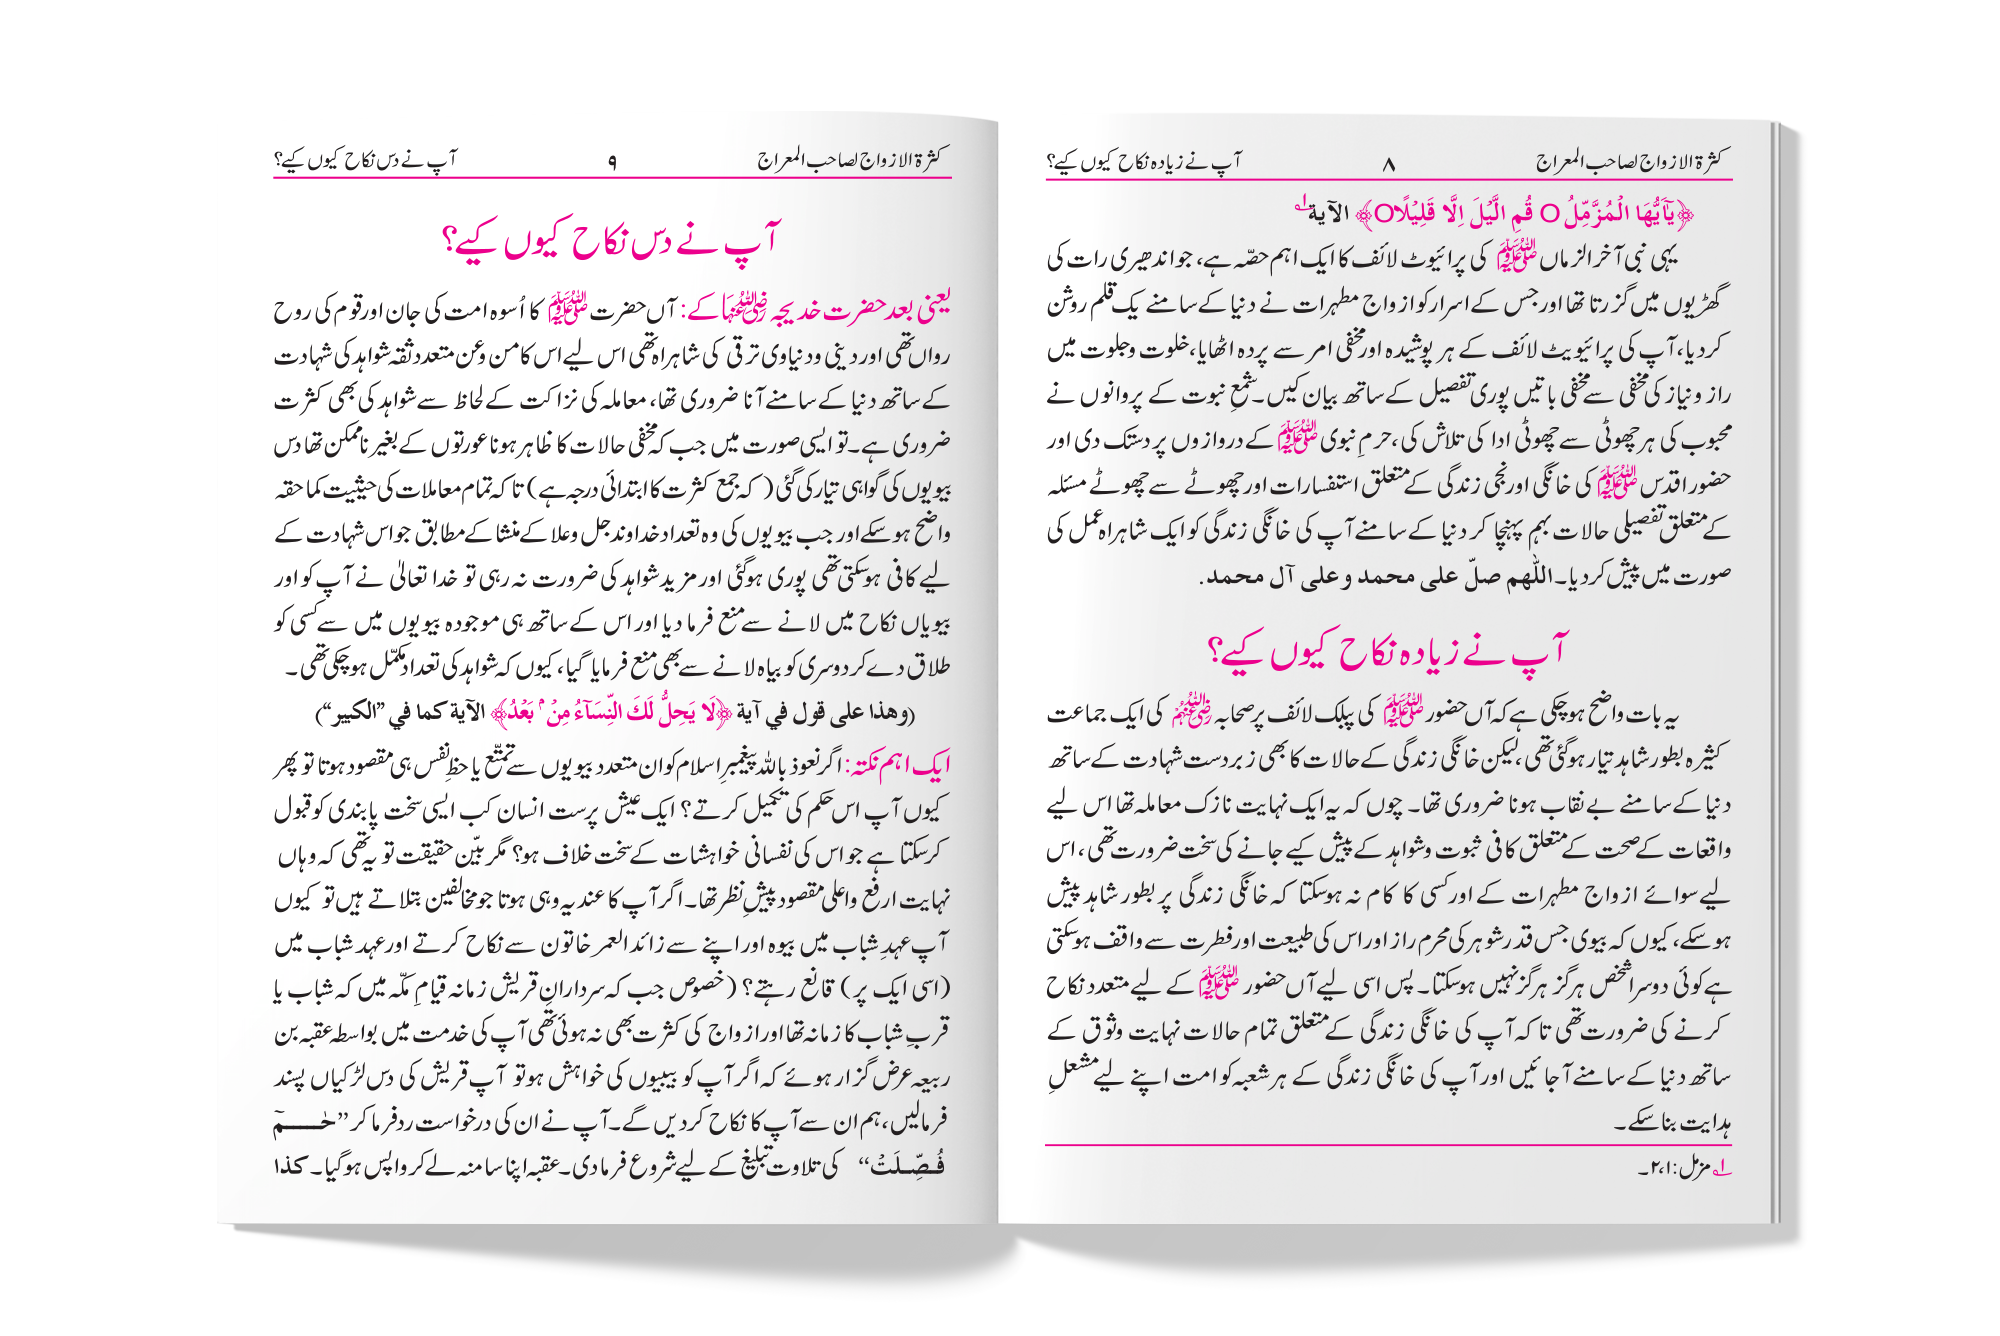 کثرۃ الازواج لصاحب المعراج ۸ آپ نے زیادہ نکاح کیوں کیے؟
﴿یٰۤاَیُّهَا الْمُزَّمِّلُ O قُمِ الَّیْلَ اِلَّا قَلِیْلًاO﴾ الآیة ۱؎
یہی نبی آخر الزماں ﷺ کی پرائیوٹ لائف کا ایک اہم حصّہ ہے، جو اندھیری رات کی
گھڑیوں میں گزرتا تھا اور جس کے اسرار کو ازواج مطہرات نے دنیا کے سامنے یک قلم روشن
کردیا، آپ کی پرائیویٹ لائف کے ہر پوشیدہ اور مخفی امر سے پردہ اٹھایا، خلوت وجلوت میں
راز ونیاز کی مخفی سے مخفی باتیں پوری تفصیل کے ساتھ بیان کیں۔ شمعِ نبوت کے پروانوں نے
محبوب کی ہر چھوٹی سے چھوٹی ادا کی تلاش کی، حرمِ نبوی ﷺ کے دروازوں پر دستک دی اور
حضور اقدس ﷺ کی خانگی اور نجی زندگی کے متعلق استفسارات اور چھوٹے سے چھوٹے مسئلہ
کے متعلق تفصیلی حالات بہم پہنچا کر دنیا کے سامنے آپ کی خانگی زندگی کو ایک شاہراہ عمل کی
صورت میں پیش کردیا۔ اللّٰهم صلّ على محمد وعلى آل محمد.
آپ نے زیادہ نکاح کیوں کیے؟
یہ بات واضح ہوچکی ہے کہ آں حضور ﷺ کی پبلک لائف پر صحابہ رضی اللہ عنہم کی ایک جماعت
کثیرہ بطور شاہد تیار ہوگئی تھی، لیکن خانگی زندگی کے حالات کا بھی زبردست شہادت کے ساتھ
دنیا کے سامنے بے نقاب ہونا ضروری تھا۔ چوں کہ یہ ایک نہایت نازک معاملہ تھا اس لیے
واقعات کے صحت کے متعلق کافی ثبوت وشواہد کے پیش کیے جانے کی سخت ضرورت تھی، اس
لیے سوائے ازواج مطہرات کے اور کسی کا کام نہ ہوسکتا کہ خانگی زندگی پر بطور شاہد پیش
ہوسکے، کیوں کہ بیوی جس قدر شوہر کی محرم راز اور اس کی طبیعت اور فطرت سے واقف ہوسکتی
ہے کوئی دوسرا شخص ہرگز ہرگز نہیں ہوسکتا۔ پس اسی لیے آں حضور ﷺ کے لیے متعدد نکاح
کرنے کی ضرورت تھی تاکہ آپ کی خانگی زندگی کے متعلق تمام حالات نہایت وثوق کے
ساتھ دنیا کے سامنے آجائیں اور آپ کی خانگی زندگی کے ہر شعبہ کو امت اپنے لیے مشعلِ
ہدایت بنا سکے۔
۱؎ مزمل: ۱،۲۔
کثرۃ الازواج لصاحب المعراج ۹ آپ نے دس نکاح کیوں کیے؟
آپ نے دس نکاح کیوں کیے؟
یعنی بعد حضرت خدیجہ رضی اللہ عنہا کے: آں حضرت ﷺ کا اُسوہ امت کی جان اور قوم کی روح
رواں تھی اور دینی ودنیاوی ترقی کی شاہراہ تھی اس لیے اس کا من وعن متعدد ثقہ شواہد کی شہادت
کے ساتھ دنیا کے سامنے آنا ضروری تھا، معاملہ کی نزاکت کے لحاظ سے شواہد کی بھی کثرت
ضروری ہے۔ تو ایسی صورت میں جب کہ مخفی حالات کا ظاہر ہونا عورتوں کے بغیر ناممکن تھا دس
بیویوں کی گواہی تیار کی گئی (کہ جمع کثرت کا ابتدائی درجہ ہے) تاکہ تمام معاملات کی حیثیت کما حقہ
واضح ہوسکے اور جب بیویوں کی وہ تعداد خداوند جل وعلا کے منشا کے مطابق جو اس شہادت کے
لیے کافی ہوسکتی تھی پوری ہوگئی اور مزید شواہد کی ضرورت نہ رہی تو خدا تعالیٰ نے آپ کو اور
بیویاں نکاح میں لانے سے منع فرما دیا اور اس کے ساتھ ہی موجودہ بیویوں میں سے کسی کو
طلاق دے کر دوسری کو بیاہ لانے سے بھی منع فرمایا گیا، کیوں کہ شواہد کی تعداد مکمّل ہوچکی تھی۔
(وهذا على قول في آية ﴿لَا يَحِلُّ لَكَ النِّسَآءُ مِنْۢ بَعْدُ﴾ الآية كما في ”الكبير“)
ایک اہم نکتہ: اگر نعوذ باللہ پیغمبرِ اسلام کو ان متعدد بیویوں سے تمتّع یا حظِ نفس ہی مقصود ہوتا تو پھر
کیوں آپ اس حکم کی تکمیل کرتے؟ ایک عیش پرست انسان کب ایسی سخت پابندی کو قبول
کرسکتا ہے جو اس کی نفسانی خواہشات کے سخت خلاف ہو؟ مگر بیّن حقیقت تو یہ تھی کہ وہاں
نہایت ارفع واعلی مقصود پیشِ نظر تھا۔ اگر آپ کا عندیہ وہی ہوتا جو مخالفین بتلاتے ہیں تو کیوں
آپ عہدِ شباب میں بیوہ اور اپنے سے زائد العمر خاتون سے نکاح کرتے اور عہد شباب میں
(اسی ایک پر) قانع رہتے؟ (خصوص جب کہ سردارانِ قریش زمانہ قیامِ مکّہ میں کہ شباب یا
قربِ شباب کا زمانہ تھا اور ازواج کی کثرت بھی نہ ہوئی تھی آپ کی خدمت میں بواسطہ عقبہ بن
ربیعہ عرض گزار ہوئے کہ اگر آپ کو بیبیوں کی خواہش ہو تو آپ قریش کی دس لڑکیاں پسند
فرمالیں، ہم ان سے آپ کا نکاح کردیں گے۔ آپ نے ان کی درخواست رد فرما کر ”حٰـمٓ
فُصِّلَتْ“ کی تلاوت تبلیغ کے لیے شروع فرمادی۔ عقبہ اپنا سا منہ لے کر واپس ہوگیا۔ کذا